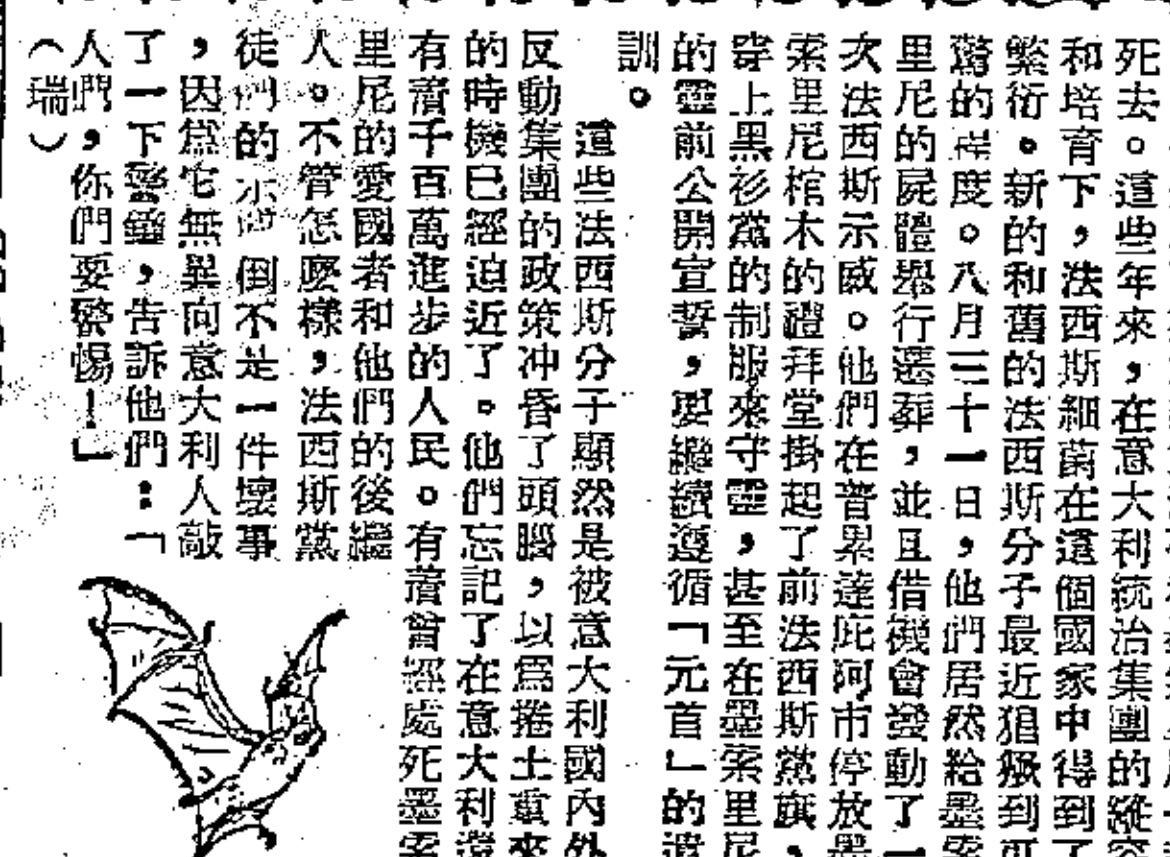 死去。這些年來，在意大利統治集團的縱容
和培育下，法西斯細菌在這個國家中得到了
繁衍。新的和舊的法西斯分子最近猖獗到可
驚的程度。八月三十一日，他們居然給墨索
里尼的屍體舉行遷葬，並且借機會發動了一
次法西斯示威。他們在普累達庇阿市停放墨
索里尼棺木的禮拜堂掛起了前法西斯黨旗，
穿上黑衫黨的制服來守靈，甚至在墨索里尼
的靈前公開宣誓，要繼續遵循「元首」的遺
訓。
這些法西斯分子顯然是被意大利國內外
反動集團的政策冲昏了頭腦，以爲捲土重來
的時機已經迫近了。他們忘記了在意大利還
有着千百萬進步的人民。有着曾經處死墨索
里尼的愛國者和他們的後繼
人。不管怎麽樣，法西斯黨
徒們的示威倒不是一件壞事
，因爲它無異向意大利人敲
了一下警鐘，告訴他們：「
人們，你們要警惕！」
（瑞）